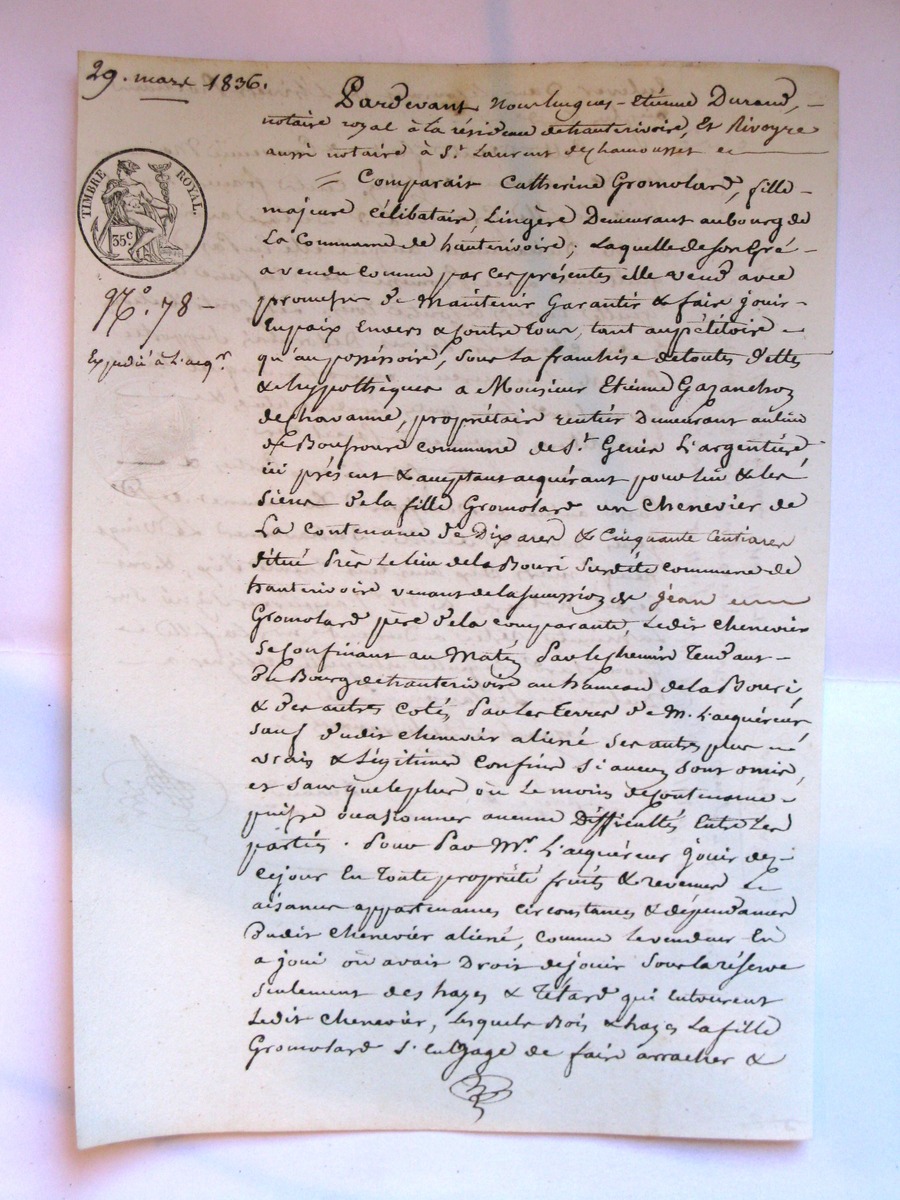 29. mars 1836.
Pardevant Nous hugues-Etiénne Durand,
notaire royal à la résidence de hauterivoire, Et Rivoyre
aussi notaire à St. Laurent dechamousset
TIMBRE ROYAL.
35c
= Comparait Catherine Gromolard, fille
majeure Célibataire, Lingère Demeurant au bourg de
La Commune de hauterivoire; Laquelle de son Gré
a vendu comme par ces présentes elle vend avec
promesse de Maintenir Garantir & faire jouir
No. 78
En paix Envers & Contre tous, tant au pétitoire
Expédié à L'acqr.
qu'au possessoire, sous la franchise detoutes dettes
& hypothèques a Monsieur Etiénne Gazanchoz
dechavanne, propriétaire rentier Demeurant au lieu
de commune de St. Genis L'argentière
ici présent & acceptant acquérant pour lui & les
siens de la fille Gromolard un Chenevier de
La Contenance de Dix ares & Cinquante Centiares
situé Près Le lieu de la Bouri susdite commune de
hauterivoire venant de la succession de jean
Gromolard père de la comparante, Ledit chenevier
se Confinant au Matin Par le chemin Tendant
du Bourg de hauterivoire au hameau de la Bouri,
& des autres cotés, Par Les Terres de M. L'acquéreur,
sauf dudit chenevier aliené ses autres plus
vrais & Légitimes Confins si aucuns sont omis,
et sans que le plus ou Le moins de Contenance
puisse occasionner aucune Difficultés Entre Les
parties. Pour Par Mr. L'acquéreur jouir dès
ce jour En toute propriété fruits & revenus
aisances appartenances circonstances & dépendances
dudit chenevier aliené, comme la vendeuse En
a joui ou avait Droit de jouir sous la réserve
seulement des hayes & Tétard qui entourent
Ledit chenevier, Lesquels Bois & hayes La fille
Gromolard s'engage de faire arracher &